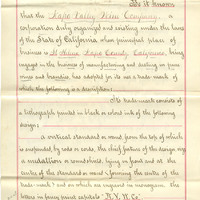 Be It Known
that the Napa Valley Wine Company, a
corporation duly organized and existing under the laws
of the State of California whose principal place of
business is St Helena Napa County, California, being
engaged in the business of manufacturing and dealing in pure
wines and brandies, has adopted for its use a trade-mark of
which the following is a description:
This trade-mark consists of
a lithograph printed in black or other ink of the following
design:
a vertical standard or mount from the top of which
is suspended, by cords or ends, the chief feature of the design
a medallion or somewhat, lying in front and at the
center of the standard or mount, forming the centre of the
trade-mark, and on which are inscribed in monogram the
letters in fancy print capitals "N. V. W. Co"